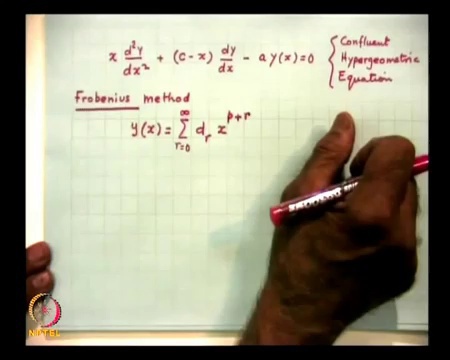 x d²y/dx² + (c-x) dy/dx - a y(x)=0 { Confluent
Hypergeometric
Equation
Frobenius method
y(x)= ∑_{r=0}^{∞} d_r x^{p+r}
NPTEL